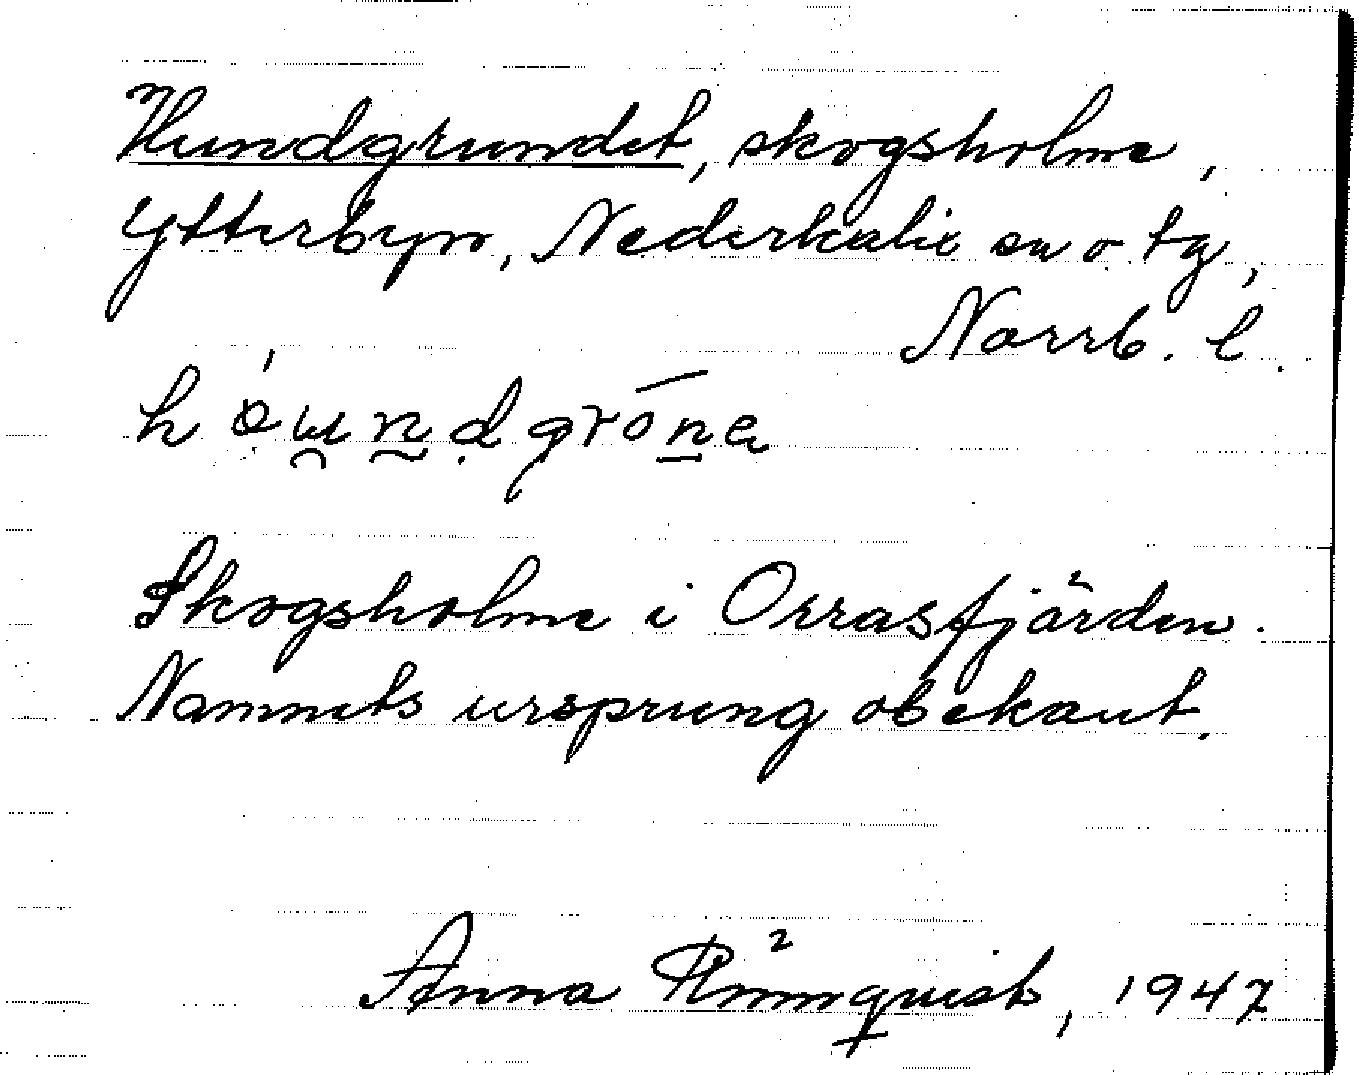 Hundgrundet, skogsholme,
Ytterbyn, Nederkalix sn o tg,
Norrb. l.
Skogsholme i Orrasfjärden.
Namnets ursprung obekant.
Anna Rönnquist, 1947